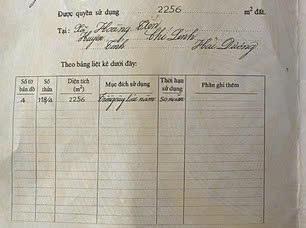 Được quyền sử dụng 2256 m² đất.
Tại: Xã Hoàng Tân
Huyện Chí Linh
Tỉnh Hải Dương
Theo bảng liệt kê dưới đây:
Số tờ bản đồ Số thửa Diện tích (m²) Mục đích sử dụng Thời hạn sử dụng Phần ghi thêm
4 2256 50 năm